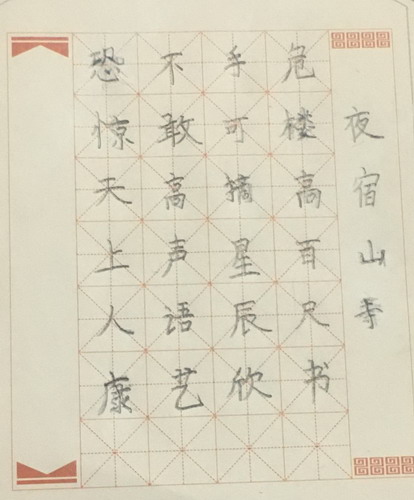 夜宿山寺
危楼高百尺书
手可摘星辰欣
不敢高声语艺
恐惊天上人康